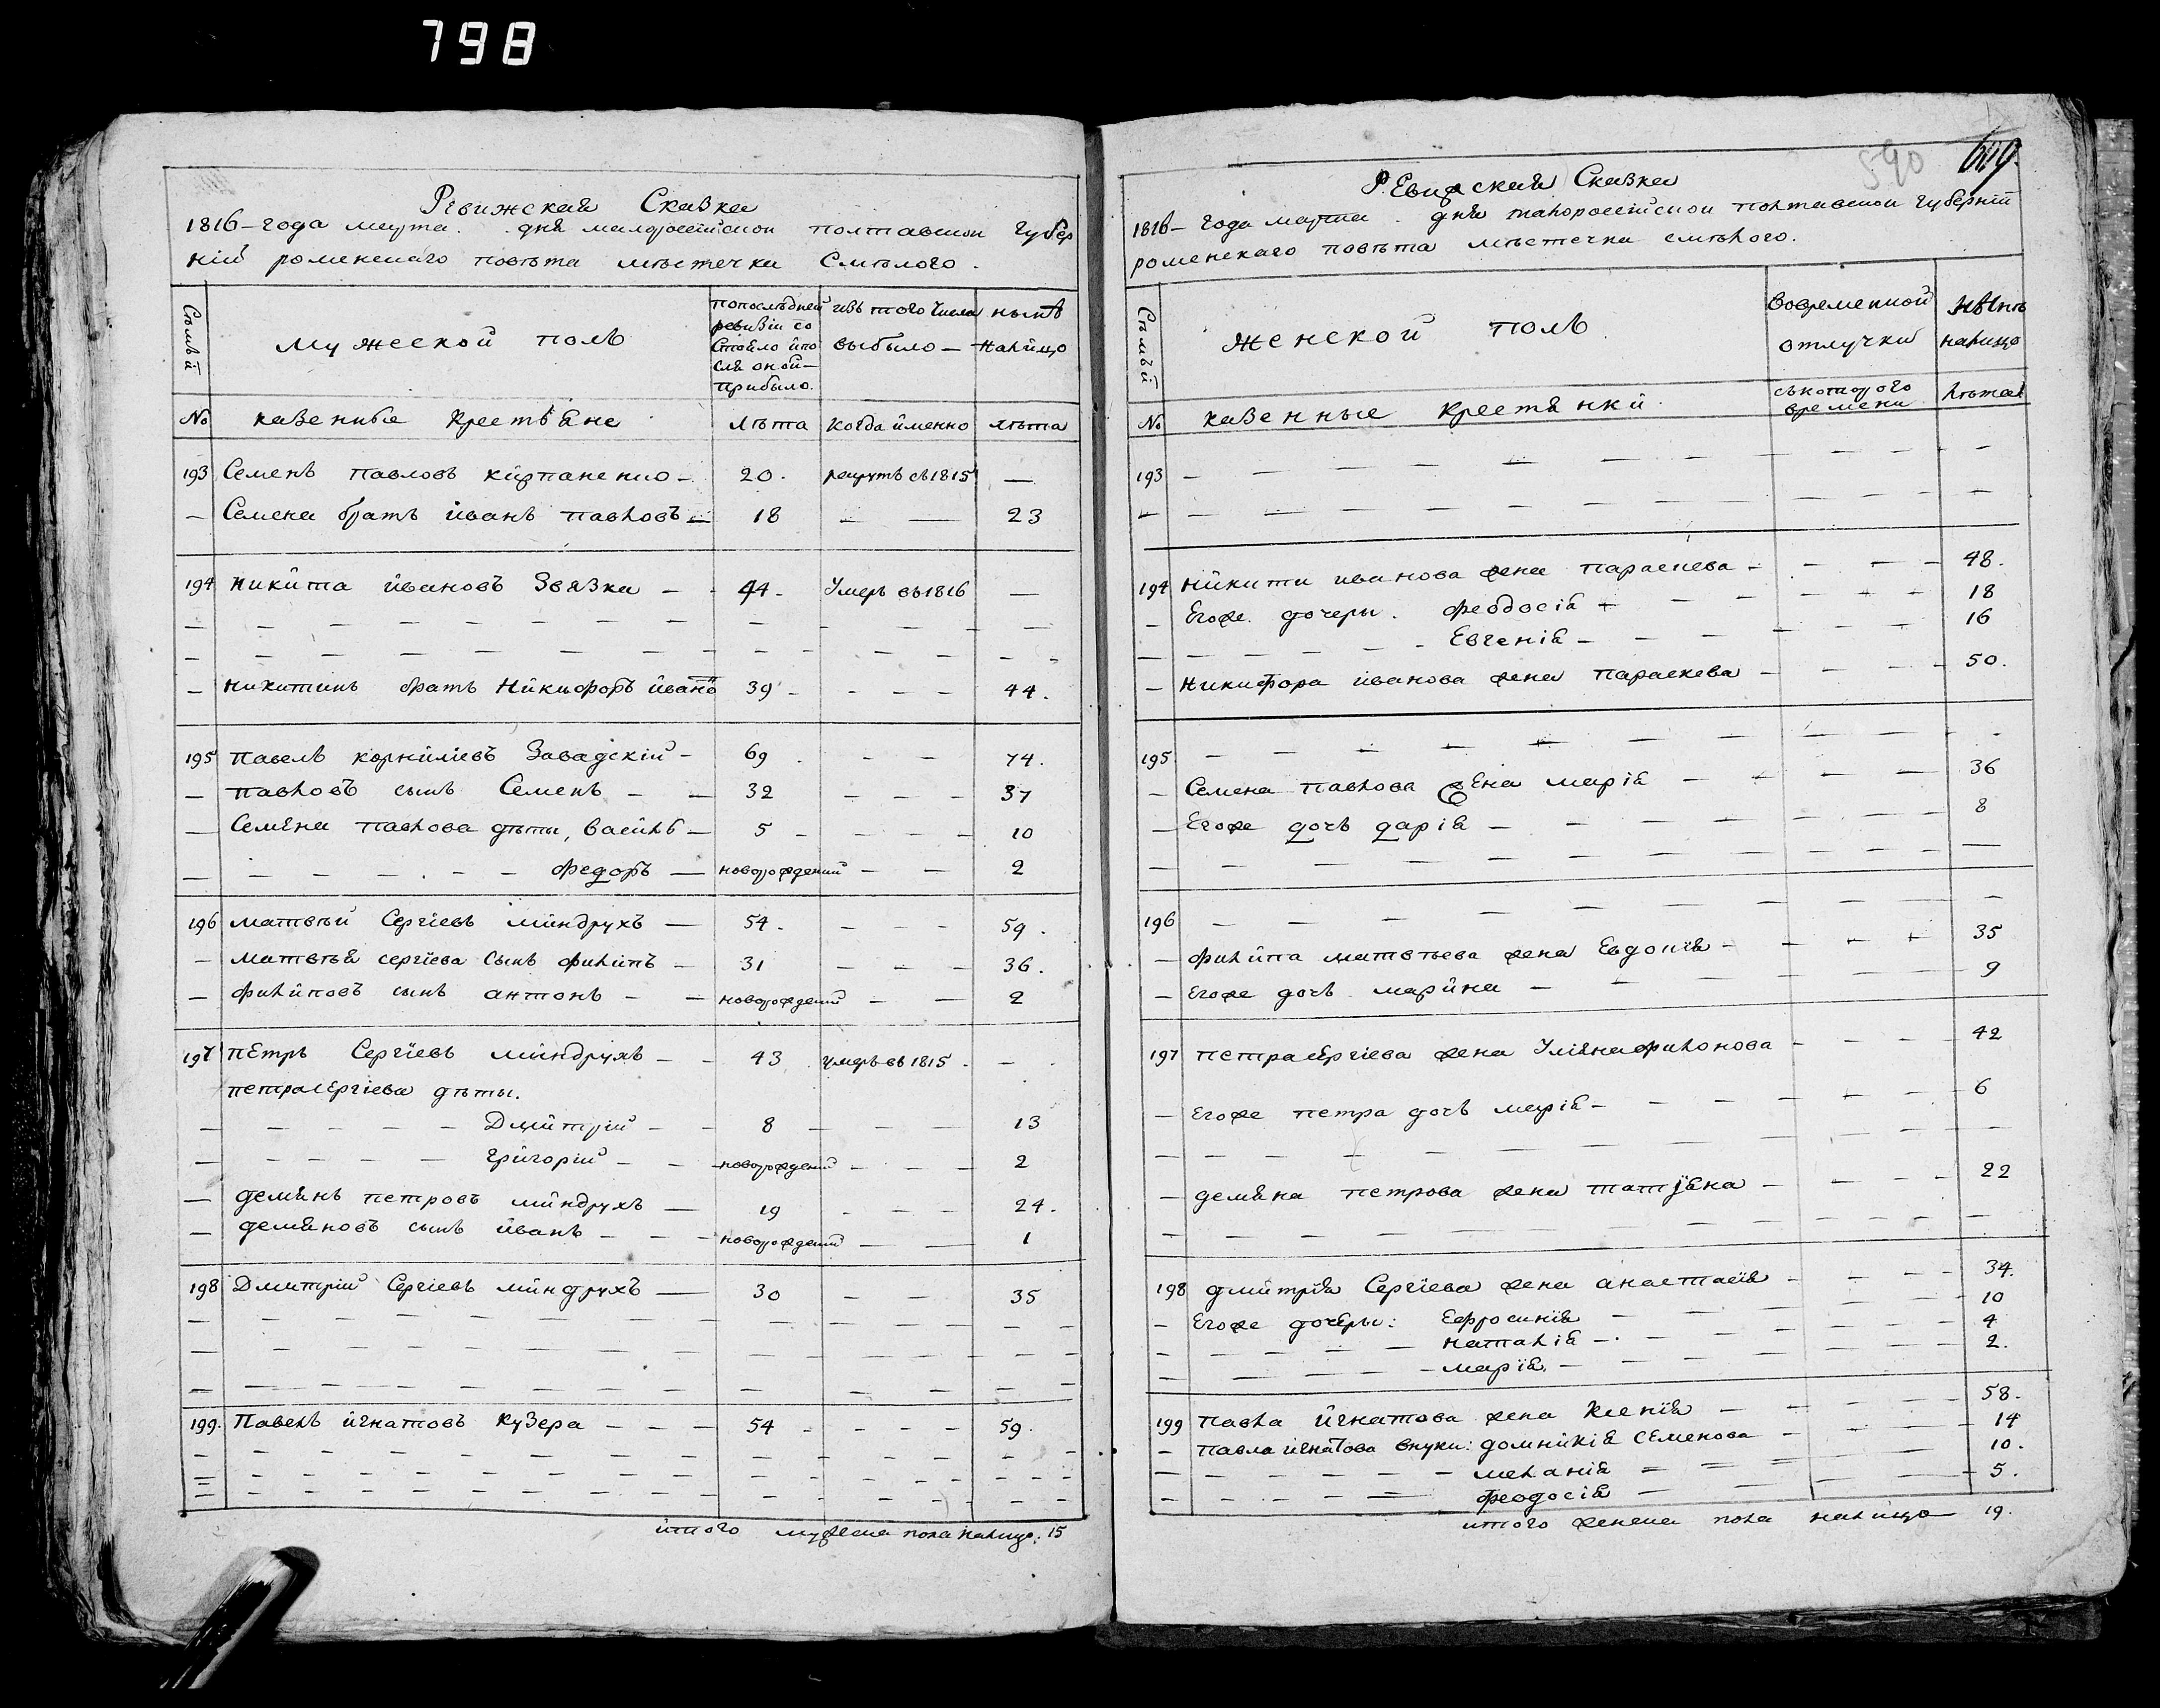 798
Ревижская Сказка
1816 – года марта . дня малоросійской полтавской губер
ніи роменскаго повѣта мѣстечка Смѣлого .
Сѣмьи мужеской полъ попослѣдней ревизіи со стояло ипо сля оной – прибыло. изъ того числа выбыло – нынѣ налицо
№ казенные крестьяне лѣта когда именно лѣта
193 Семенъ павловъ кирпаненко – 20 . рекрутъ съ 1815 —
— Семена братъ иванъ павловъ — 18 — — 23
194 никита ивановъ Звязка — 44 – Умеръ въ 1816 —
— никитинъ братъ Никифоръ ивано 39 – – – – 44 .
195 павелъ корниліевъ Завадскій – 69 . – – 74 .
— павловъ сынъ Семенъ – — 32 – – – 37
— Семена павлова дѣты, василъ — 5 – – – – 10
— – – – . – – федоръ — новорожденій – — 2
196 матвѣй Сергіевъ миндрухъ — 54 . – – – 59 .
— матвѣя сергіева сынъ филипъ – 31 – – – 36 .
— филиповъ сынъ антонъ – — новорожденій – — 2
197 пЕтръ Сергіевъ миндрухъ – – 43 умеръ въ 1815 . – .
петра сЕргіева дѣты.
— – – – – Дмитрій – – 8 – – – — 13
— – – – – григорій – – новорожденій – – – 2
— демянъ петровъ миндрухъ — 19 – – – 24 .
— демяновъ сынъ иванъ – – – новорожденій — — 1
198 Дмитрій Сергіевъ миндрухъ — 30 — – 35
199. Павелъ игнатовъ кузера – – — 54 – – – – 59 .
итого мужеска пола налицо. 15
590 609.
РЕвижская Сказка
1816 – года марта . дня малоросійской полтавской губерніи
роменскаго повѣта мѣстечка смѣлого.
Сѣмьи женской полъ вовременной отлучки нынѣ налицо
№ казенные крестянки съкоторого времени лѣта
193 – — – — – — – —
194 никити иванова жена параскева – – – – – 48 .
— Егоже дочеры . феодосія – – – – 18
— – – – – Евгенія – – – – 16
— никифора иванова жена параскева – – – – 50 .
195 – — – — – — – —
— Семена павлова жЕна марія – – – — 36
— Егоже дочъ дарія – – – – 8
196 – — – — – — – —
— филипа матвѣева жена Евдокія – – – – 35
— Егоже дочъ марина – – – – 9
197 петра сЕргіева жена Уліяна филонова – – – – 42
— Егоже петра дочъ марія – – – – 6
— демяна петрова жена татіяна – – – – 22
198 дмитрія Сергіева жена анастасія – – – – 34 .
— Егоже дочЕры : Ефросинія – – – 10
— – – – – наталія – . – – – 4
— – – – – марія. – – – – 2 .
199 павла игнатова жена ксенія — – – – 58 .
— павла игнатова внуки : домникія сЕменова – – – 14
— – – – – – меланія – – – 10 .
— – – – – феодосія – – – 5 .
итого женска пола налицо 19 .